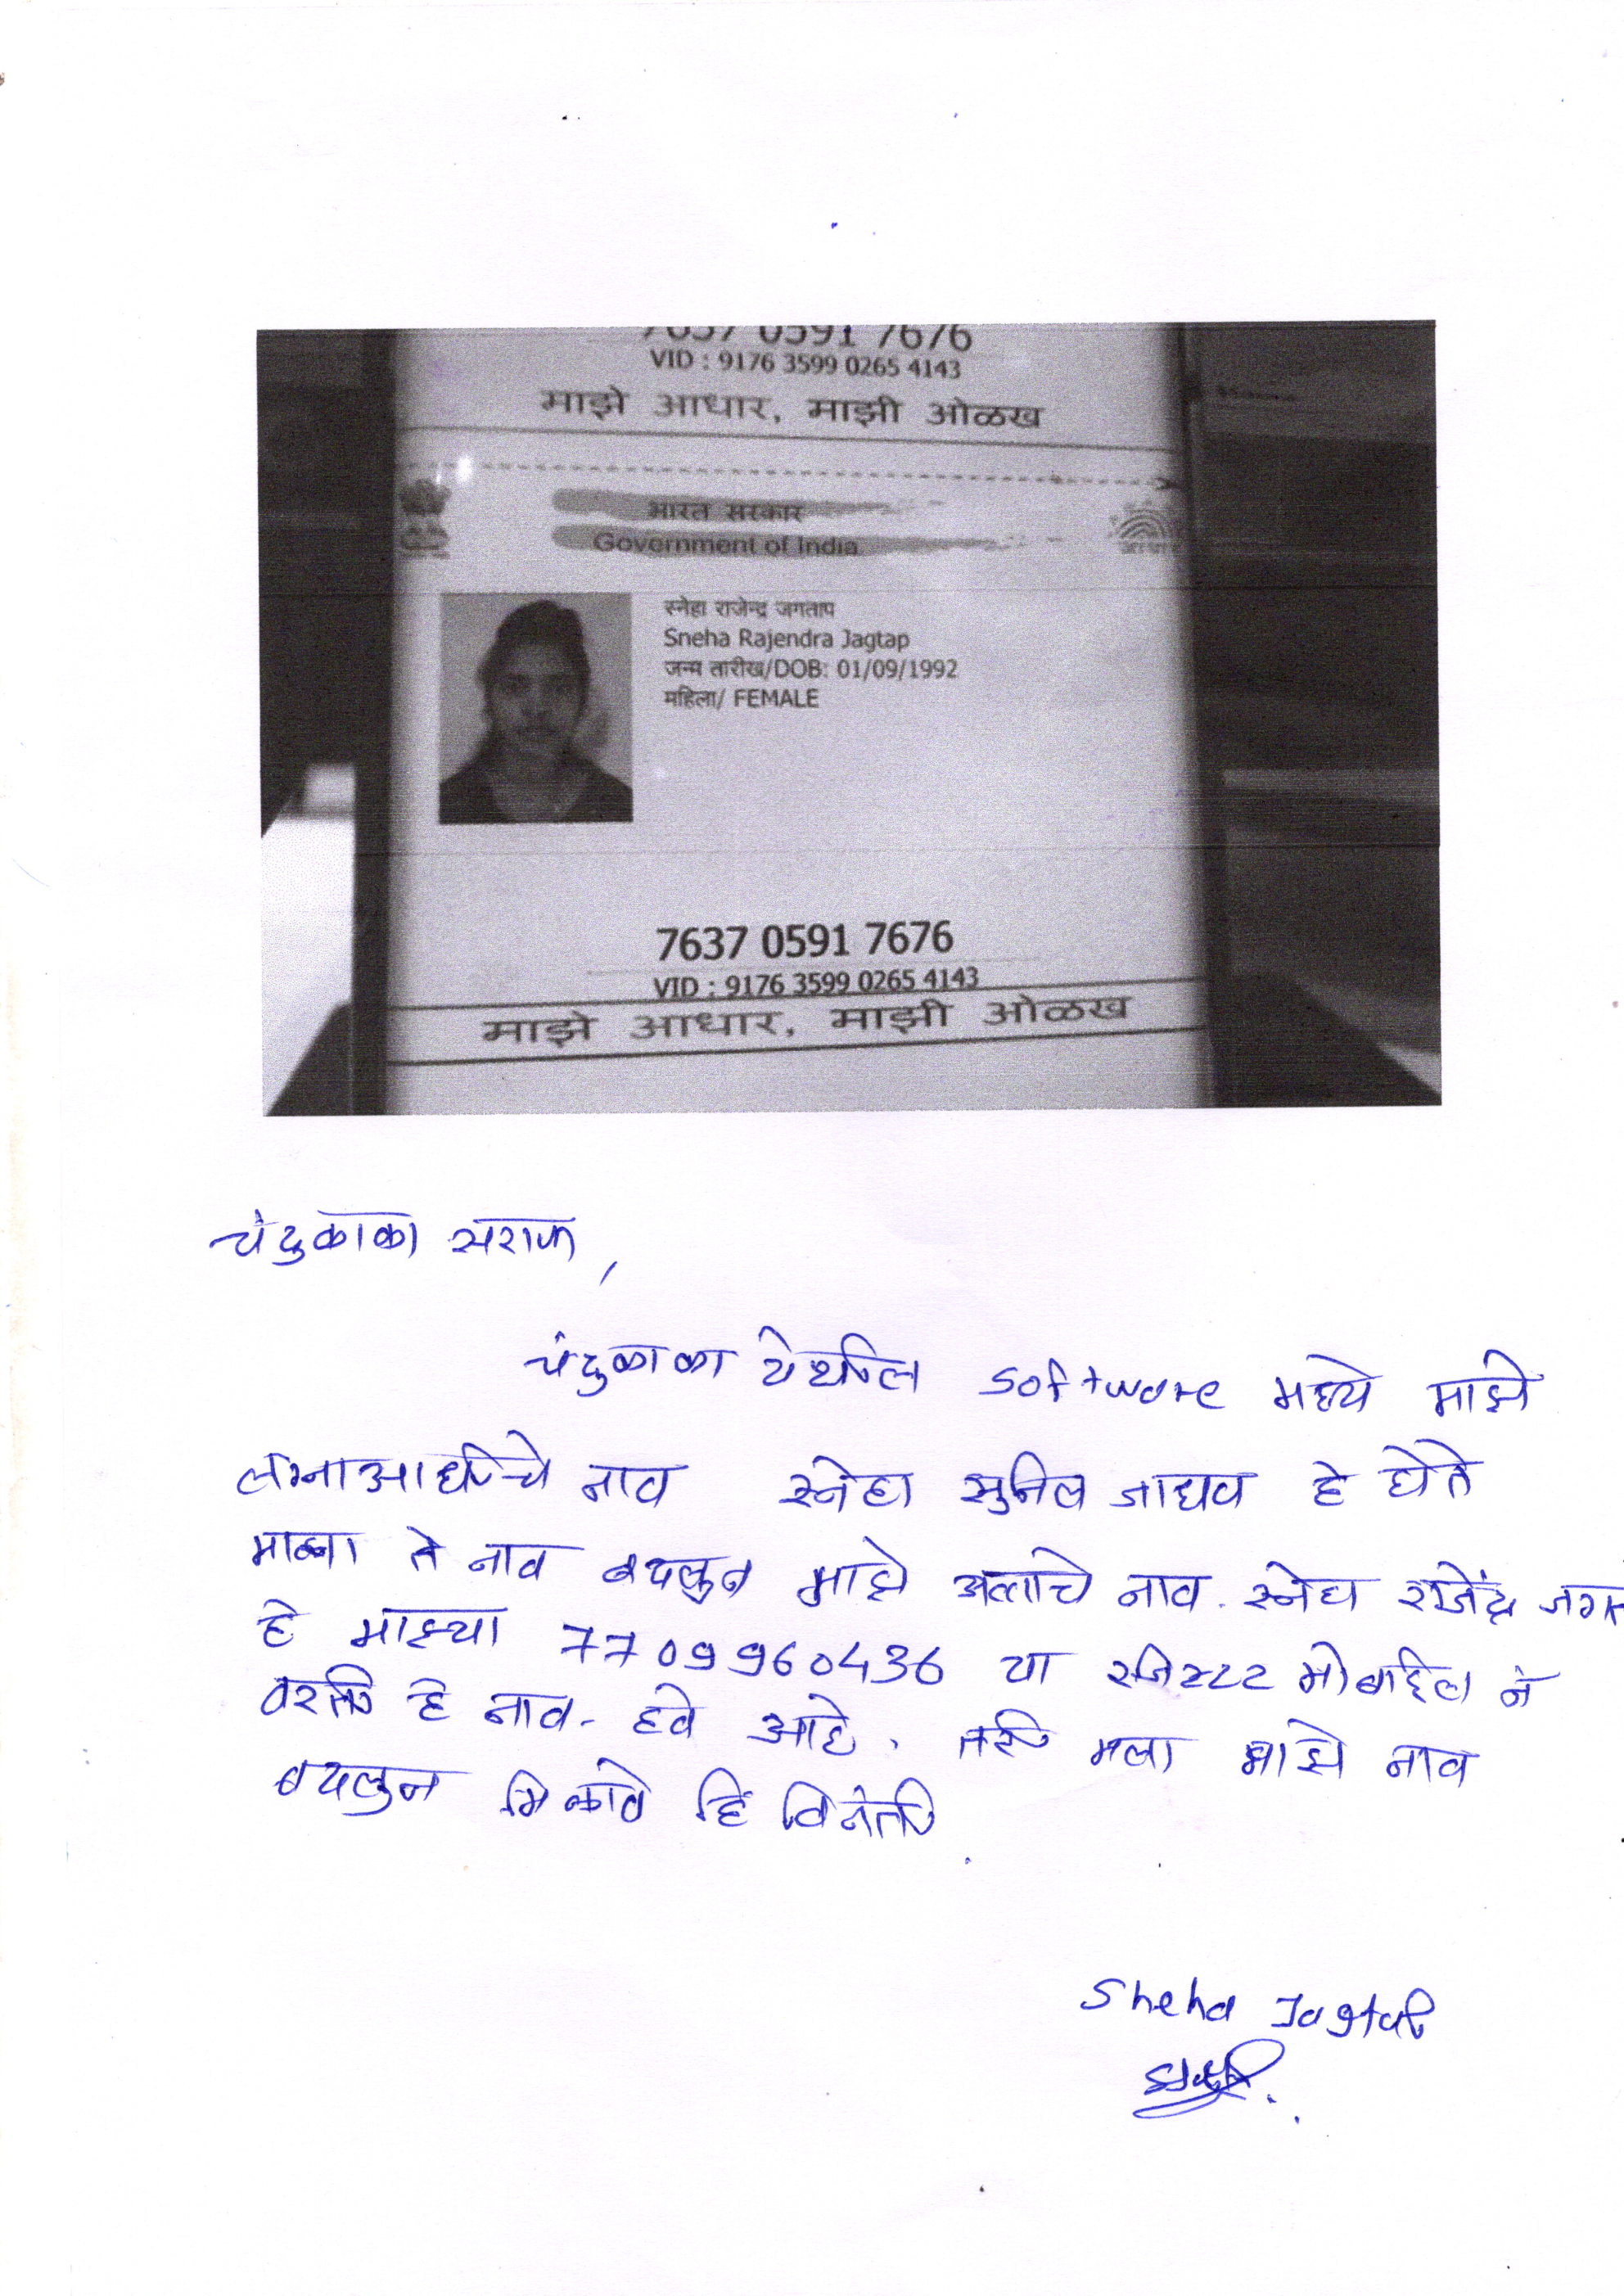 7637 0591 7676
VID : 9176 3599 0265 4143
माझे आधार, माझी ओळख
भारत सरकार
Government of India
स्नेहा राजेन्द्र जगताप
Sneha Rajendra Jagtap
जन्म तारीख/DOB: 01/09/1992
महिला/ FEMALE
7637 0591 7676
VID : 9176 3599 0265 4143
माझे आधार, माझी ओळख
चंदुकाका सराफ,
चंदुकाका येथील software मध्ये माझे
लग्नाआधीचे नाव स्नेहा सुनिल जाधव हे होते
ते नाव बदलुन माझे आत्ताचे नाव. स्नेहा राजेंद्र जगत
हे माझ्या 7709960436 या रजिस्टर मोबाईल नं
वरती हे नाव. हवे आहे. तरी मला माझे नाव
बदलुन मिळावे हि विनंती
Sneha Jagtap